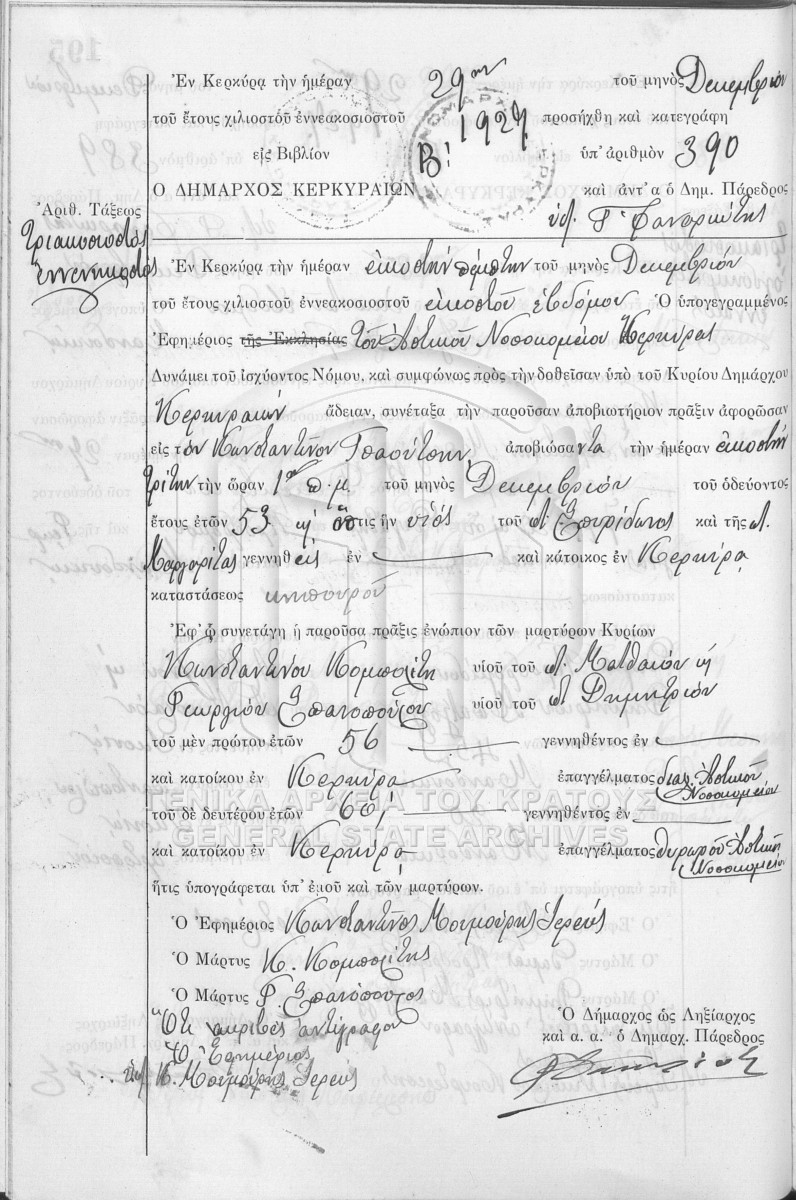 Ἐν Κερκύρᾳ τὴν ἡμέραν 29ην τοῦ μηνὸς Δεκεμβρίου
τοῦ ἔτους χιλιοστοῦ ἐννεακοσιοστοῦ 1927 προσήχθη καὶ κατεγράφη
εἰς Βιβλίον Β! ὑπ' ἀριθμὸν 390
Ο ΔΗΜΑΡΧΟΣ ΚΕΡΚΥΡΑΙΩΝ καὶ ἀντ' α ὁ Δημ. Πάρεδρος
Ἀριθ. Τάξεως
Τριακοσιοστὸς
ἐννενηκοστὸς
Ἐν Κερκύρᾳ τὴν ἡμέραν εἰκοστὴν πέμπτην τοῦ μηνὸς Δεκεμβρίου
τοῦ ἔτους χιλιοστοῦ ἐννεακοσιοστοῦ εἰκοστοῦ ἑβδόμου Ὁ ὑπογεγραμμένος
Ἐφημέριος τῆς Ἐκκλησίας τοῦ Ἀστικοῦ Νοσοκομείου Κερκύρας
Δυνάμει τοῦ ἰσχύοντος Νόμου, καὶ συμφώνως πρὸς τὴν δοθεῖσαν ὑπὸ τοῦ Κυρίου Δημάρχου
Κερκυραίων ἄδειαν, συνέταξα τὴν παροῦσαν ἀποβιωτήριον πρᾶξιν ἀφορῶσαν
εἰς τὸν Κωνσταντῖνον ἀποβιώσαντα τὴν ἡμέραν εἰκοστὴν
τρίτην τὴν ὥραν 1ην π.μ. τοῦ μηνὸς Δεκεμβρίου τοῦ ὁδεύοντος
ἔτους ἐτῶν 53 ὅστις ἦν υἱὸς τοῦ Σπυρίδωνος καὶ τῆς
Μαργαρίτας γεννηθεὶς ἐν καὶ κάτοικος ἐν Κερκύρᾳ
καταστάσεως κηπουροῦ
Ἐφ' ᾧ συνετάγη ἡ παροῦσα πρᾶξις ἐνώπιον τῶν μαρτύρων Κυρίων
Κωνσταντίνου Κομπολίτη υἱοῦ τοῦ Ματθαίου
Γεωργίου Σπανοπούλου υἱοῦ τοῦ Δημητρίου
τοῦ μὲν πρώτου ἐτῶν 56 γεννηθέντος ἐν
καὶ κατοίκου ἐν Κερκύρᾳ ἐπαγγέλματος Ἀστικοῦ
Νοσοκομείου
τοῦ δὲ δευτέρου ἐτῶν 60 γεννηθέντος ἐν
καὶ κατοίκου ἐν Κερκύρᾳ ἐπαγγέλματος θυρωροῦ
Νοσοκομείου
ΓΕΝΙΚΑ ΑΡΧΕΙΑ ΤΟΥ ΚΡΑΤΟΥΣ
GENERAL STATE ARCHIVES
ἥτις ὑπογράφεται ὑπ' ἐμοῦ καὶ τῶν μαρτύρων.
Ὁ Ἐφημέριος Κωνσταντῖνος Μουμούρης Ἱερεύς
Ὁ Μάρτυς Κ. Κομπολίτης
Ὁ Μάρτυς Γ. Σπανόπουλος
Ὅτι ἀκριβὲς ἀντίγραφον
Ὁ Ἐφημέριος
Κ. Μουμούρης Ἱερεύς
Ὁ Δήμαρχος ὡς Ληξίαρχος
καὶ α. α. ὁ Δημαρχ. Πάρεδρος